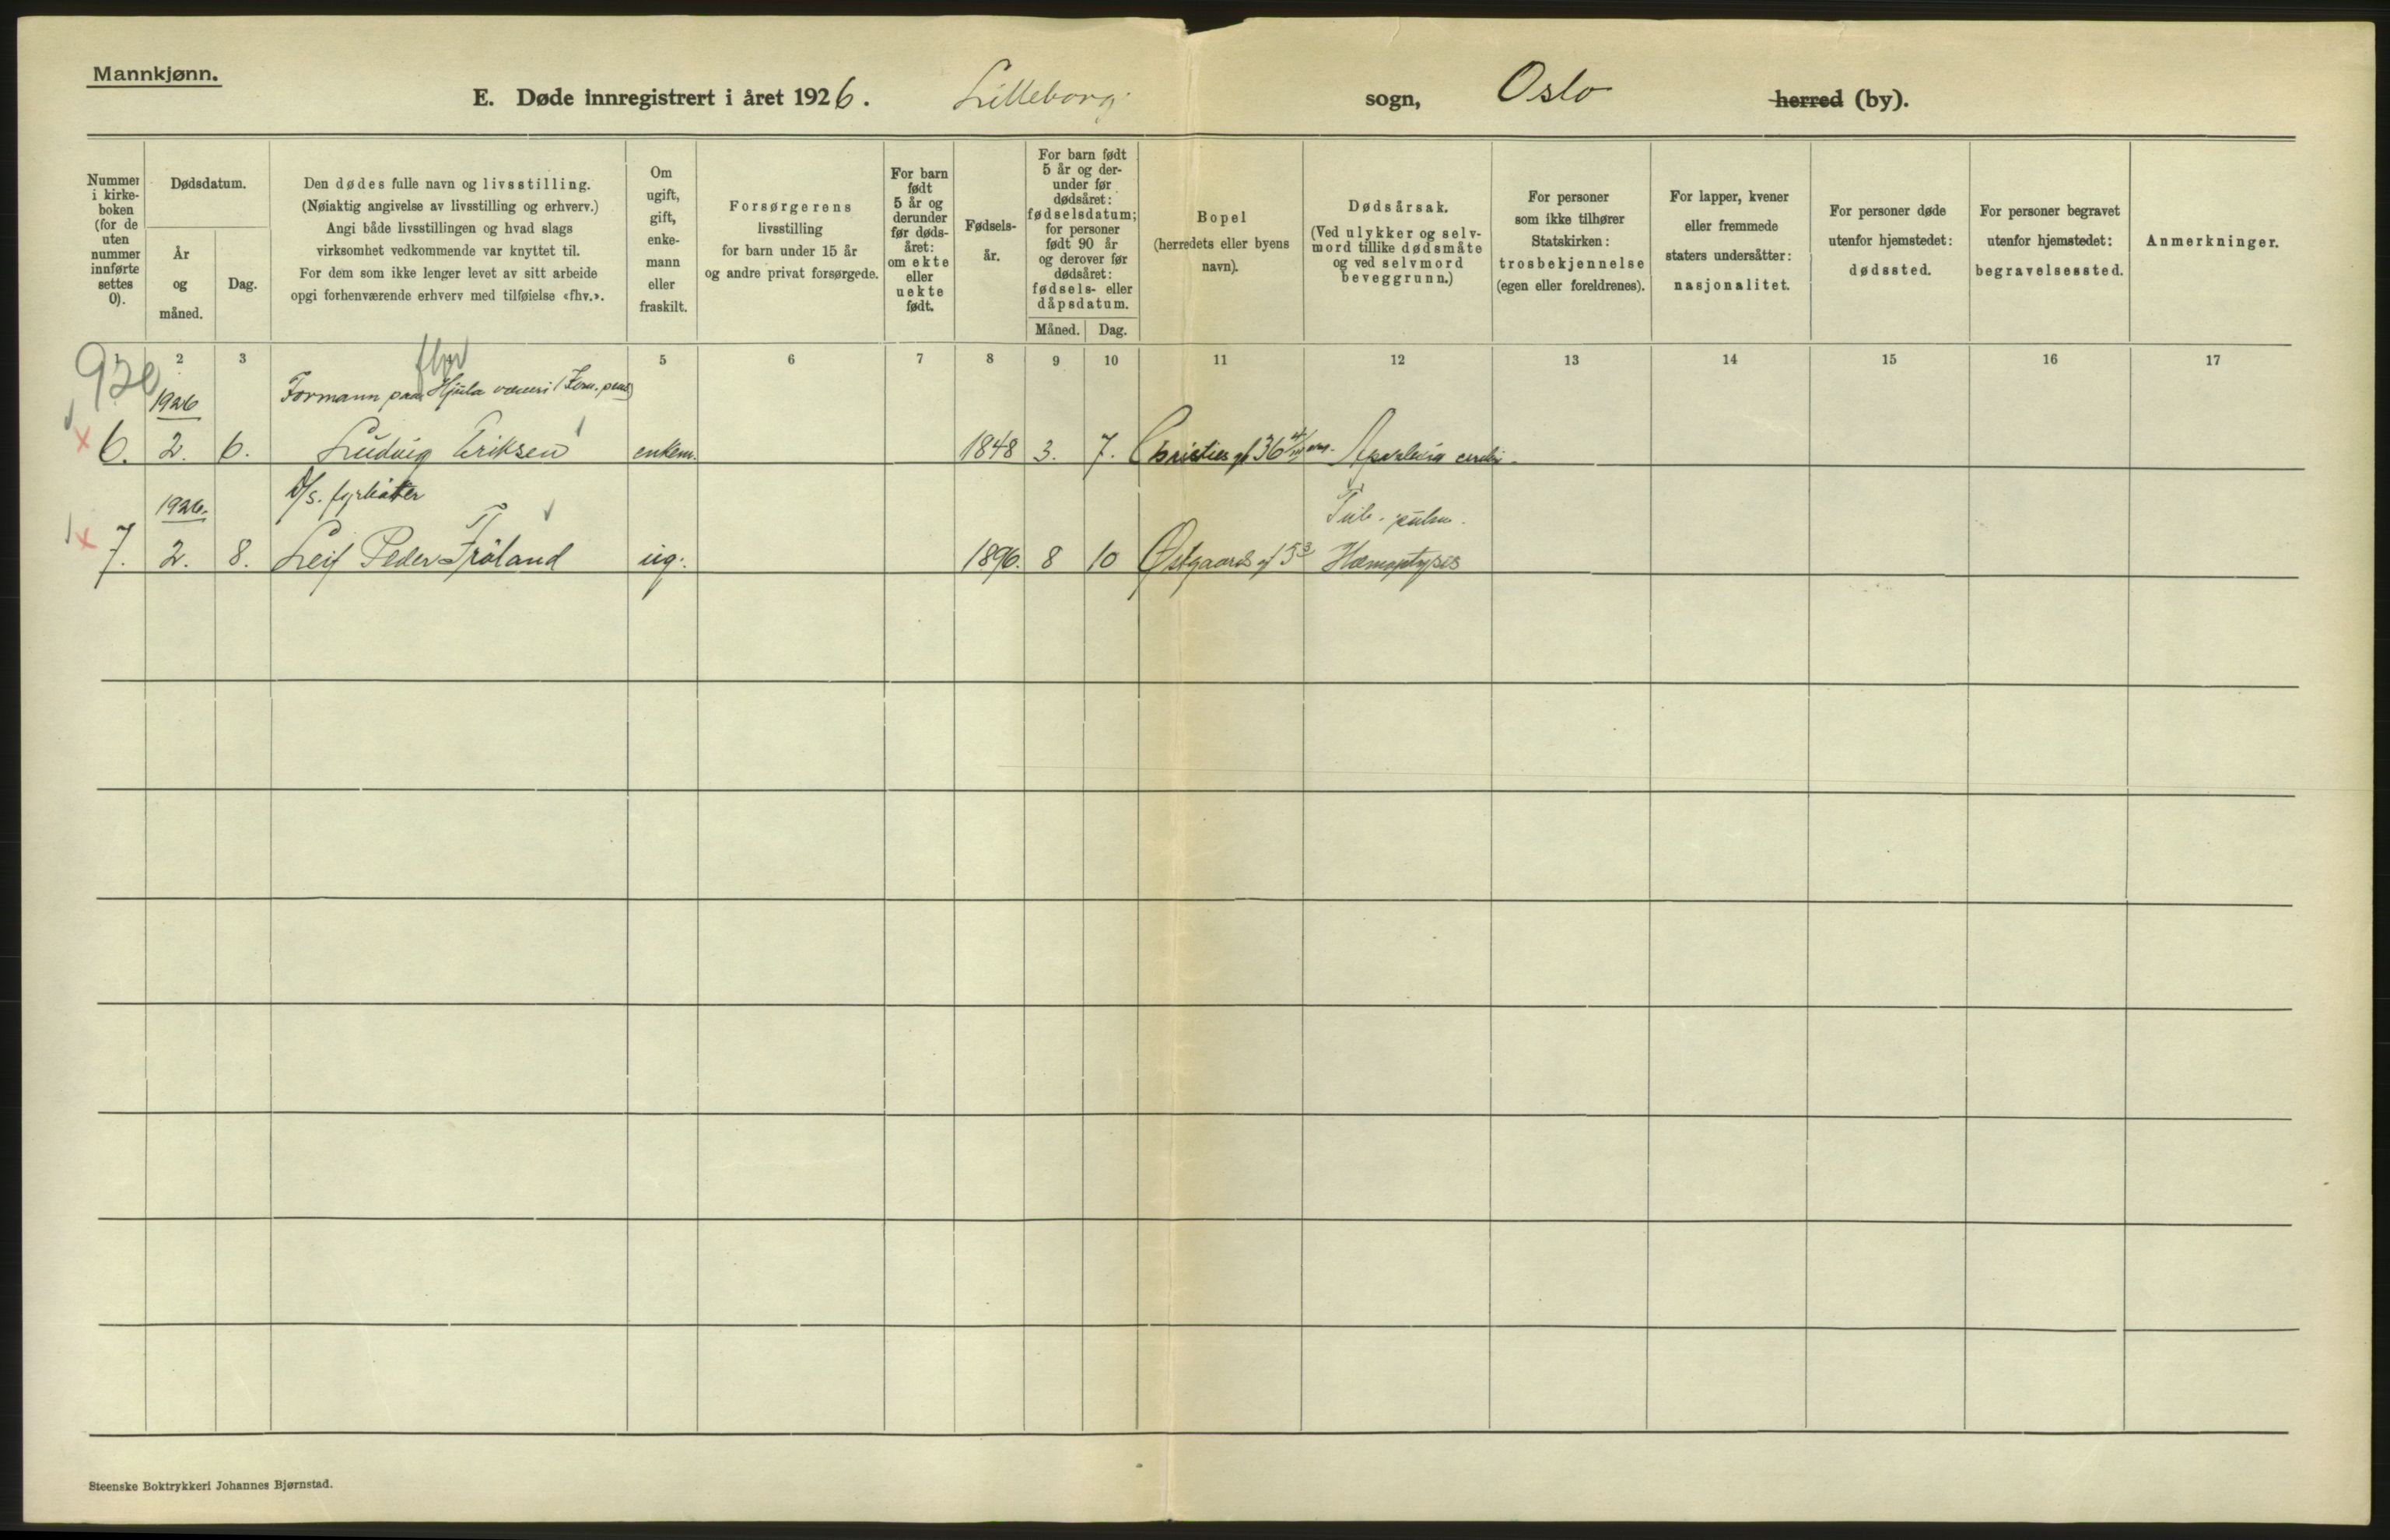 Mannkjønn.
E. Døde innregistrert i året 1926. Lilleborg sogn, Oslo herred (by).
Nummer
i kirke-
boken
(for de
uten
nummer
innførte
settes
0).
Dødsdatum.
År
og
måned.
Dag.
Den dødes fulle navn og livsstilling.
(Nøiaktig angivelse av livsstilling og erhverv.)
Angi både livsstillingen og hvad slags
virksomhet vedkommende var knyttet til.
For dem som ikke lenger levet av sitt arbeide
opgi forhenværende erhverv med tilføielse «fhv.».
Om
ugift,
gift,
enke-
mann
eller
fraskilt.
Forsørgerens
livsstilling
for barn under 15 år
og andre privat forsørgede.
For barn
født
5 år og
derunder
før døds-
året:
om ekte
eller
uekte
født.
Fødsels-
år.
For barn født
5 år og der-
under før
dødsåret:
fødselsdatum;
for personer
født 90 år
og derover før
dødsåret:
fødsels- eller
dåpsdatum.
Måned.
Dag.
Bopel
(herredets eller byens
navn).
Dødsårsak.
(Ved ulykker og selv-
mord tillike dødsmåte
og ved selvmord
beveggrunn.)
For personer
som ikke tilhører
Statskirken:
trosbekjennelse
(egen eller foreldrenes).
For lapper, kvener
eller fremmede
staters undersåtter:
nasjonalitet.
For personer døde
utenfor hjemstedet:
dødssted.
For personer begravet
utenfor hjemstedet:
begravelsessted.
Anmerkninger.
2 3 5 6 7 8 9 10 11 12 13 14 15 16 17
920
fhv
1926 Formann paa Hjula væveri (Kom. pens)
6. 2. 6. Ludvig Eriksen enkem. 1848 3. 7. Christies gt 36 Apoplexia cerebri
1926. D/s. fyrbøter Tub. pulm.
7. 2. 8. Leif Peder Frøland ug. 1896. 8 10 Østgaards gt 5 3 Hæmoptysis
Steenske Boktrykkeri Johannes Bjørnstad.